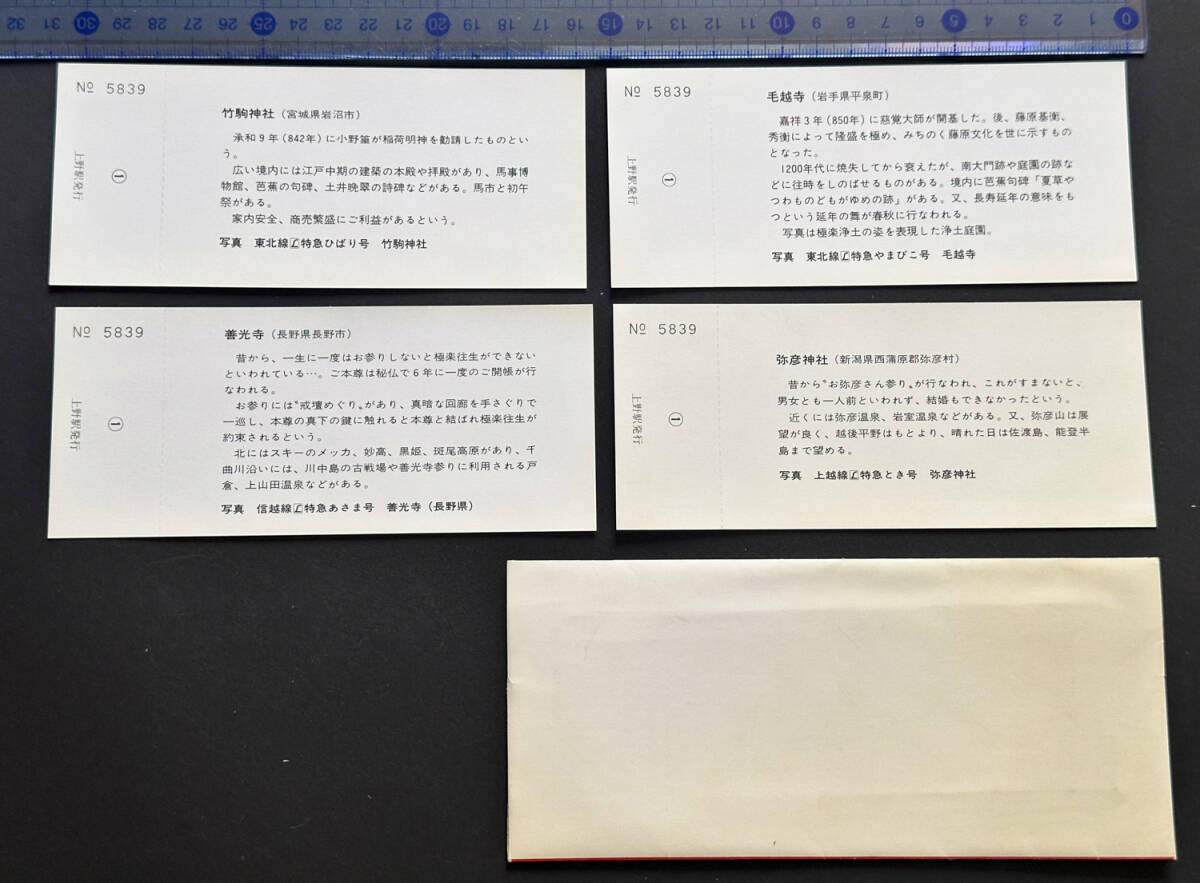 32 31 30 29 28 27 26 25 24 23 22 21 20 19 18 17 16 15 14 13 12 11 10 9 8 7 6 5 4 3 2 1 0
№ 5839
上野駅発行
①
竹駒神社（宮城県岩沼市）
承和9年（842年）に小野篁が稲荷明神を勧請したものとい
う。
広い境内には江戸中期の建築の本殿や拝殿があり、馬事博
物館、芭蕉の句碑、土井晩翠の詩碑などがある。馬市と初午
祭がある。
家内安全、商売繁盛にご利益があるという。
写真 東北線L特急ひばり号 竹駒神社
№ 5839
上野駅発行
①
毛越寺（岩手県平泉町）
嘉祥3年（850年）に慈覚大師が開基した。後、藤原基衡、
秀衡によって隆盛を極め、みちのく藤原文化を世に示すもの
となった。
1200年代に焼失してから衰えたが、南大門跡や庭園の跡な
どに往時をしのばせるものがある。境内に芭蕉句碑「夏草や
つわものどもがゆめの跡」がある。又、長寿延年の意味をも
つという延年の舞が春秋に行なわれる。
写真は極楽浄土の姿を表現した浄土庭園。
写真 東北線L特急やまびこ号 毛越寺
№ 5839
上野駅発行
①
善光寺（長野県長野市）
昔から、一生に一度はお参りしないと極楽往生ができない
といわれている…。ご本尊は秘仏で6年に一度のご開帳が行
なわれる。
お参りには〝戒壇めぐり〟があり、真暗な回廊を手さぐりで
一巡し、本尊の真下の鍵に触れると本尊と結ばれ極楽往生が
約束されるという。
北にはスキーのメッカ、妙高、黒姫、斑尾高原があり、千
曲川沿いには、川中島の古戦場や善光寺参りに利用される戸
倉、上山田温泉などがある。
写真 信越線L特急あさま号 善光寺（長野県）
№ 5839
上野駅発行
①
弥彦神社（新潟県西蒲原郡弥彦村）
昔から〝お弥彦さん参り〟が行なわれ、これがすまないと、
男女とも一人前といわれず、結婚もできなかったという。
近くには弥彦温泉、岩室温泉などがある。又、弥彦山は展
望が良く、越後平野はもとより、晴れた日は佐渡島、能登半
島まで望める。
写真 上越線L特急とき号 弥彦神社